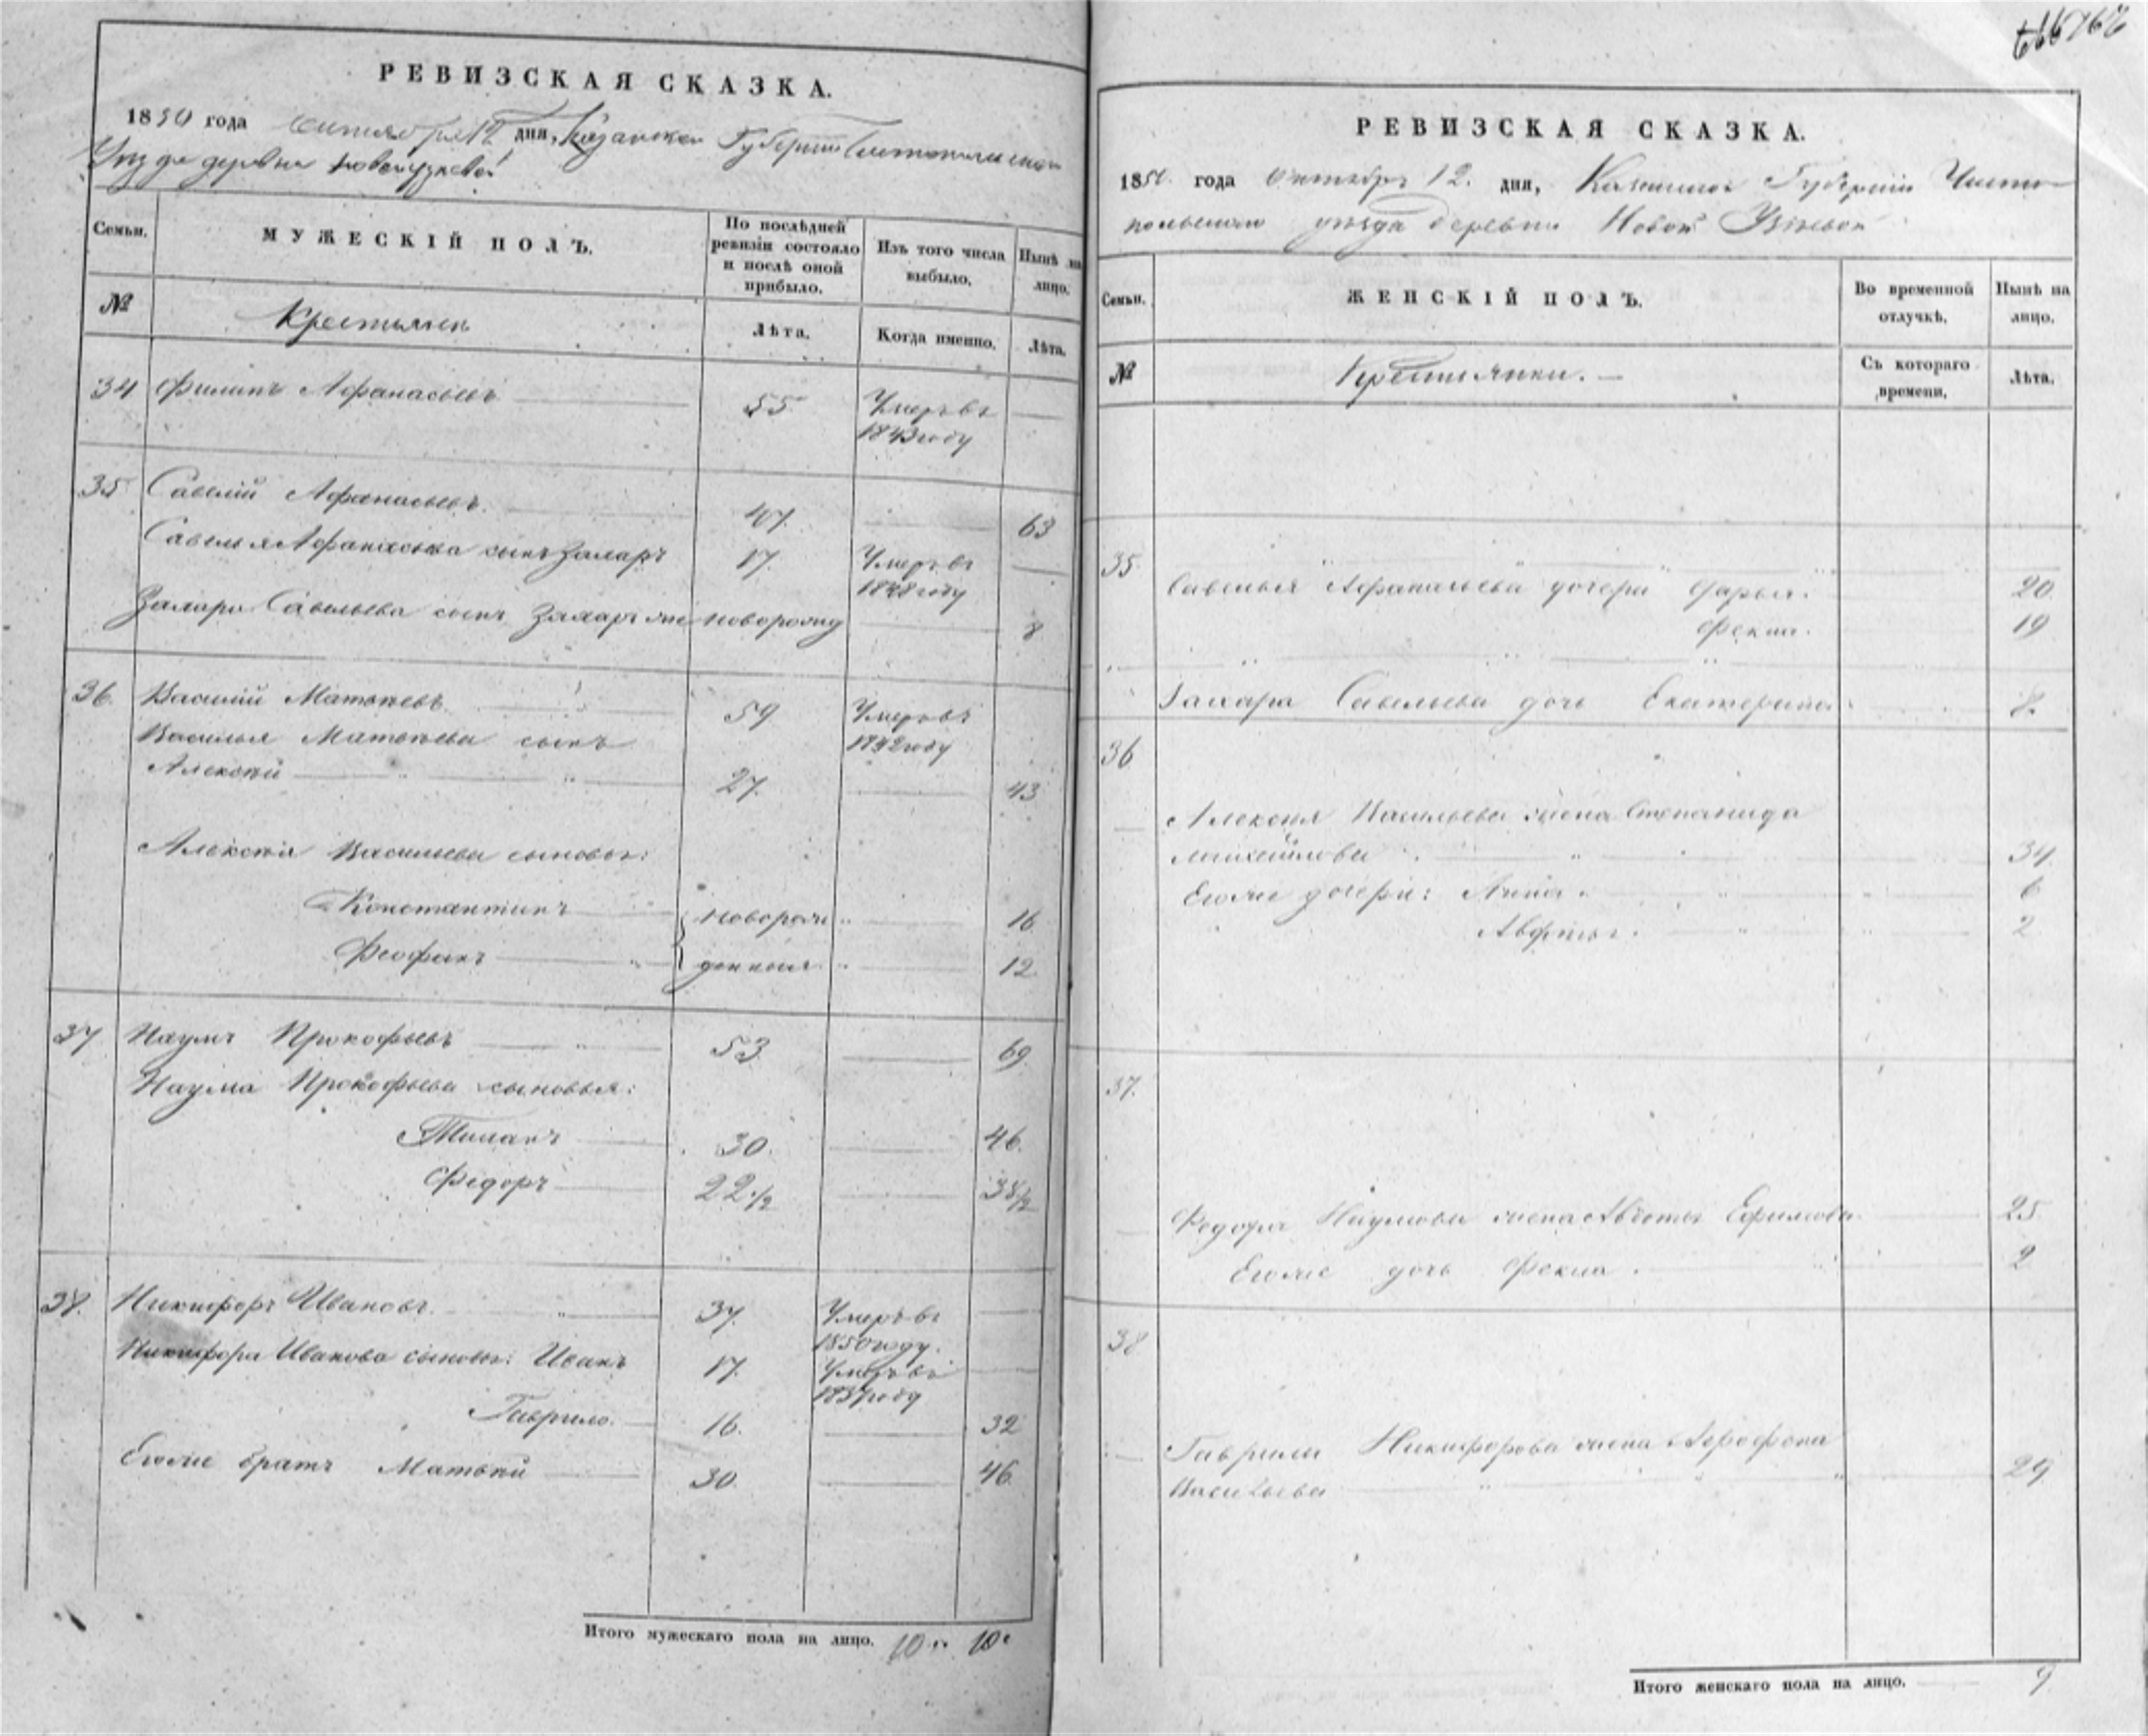 РЕВИЗСКАЯ СКАЗКА.
1850 года октября 12 дня, Казанской Губернии Чистопольскаго
Уѣзда деревни Новой Узѣевой
Семьи. МУЖЕСКІЙ ПОЛЪ. По послѣдней ревизіи состояло и послѣ оной прибыло. Изъ того числа выбыло. Нынѣ на лицо.
№ Крестьяне Лѣта. Когда именно. Лѣта.
34 Филипъ Афанасьевъ 55 Умеръ въ 1843 году
35 Савелій Афанасьевъ 47. 63
Савелья Афанасьева сынъ Захаръ 17. Умеръ въ 1848 году
Захара Савельева сынъ Захаръ же новорожд 8
36. Василий Матвѣевъ 59 Умеръ въ 1842 году
Василья Матвѣева сынъ
Алексѣй 27. 43
Алексѣя Васильева сыновья:
Константинъ новорож 16
Феофанъ денныя 12
37 Наумъ Прокофьевъ 53. 69
Наума Прокофьева сыновья:
30. 46.
Федоръ 22 1/2 38 1/2
38. Никифоръ Ивановъ 37. Умеръ въ 1850 году.
Никифора Иванова сыновья: Иванъ 17. Умеръ въ 1837 году
Гаврило 16. 32
Его же братъ Матвѣй 30. 46.
Итого мужескаго пола на лицо. 10 10
РЕВИЗСКАЯ СКАЗКА.
1850 года октября 12. дня, Казанской Губерніи Чисто-
польскаго уѣзда деревни Новой Узѣевой
Семьи. ЖЕНСКІЙ ПОЛЪ. Во временной отлучкѣ. Нынѣ на лицо.
№ Крестьянки. Съ котораго времени. Лѣта.
35 Савелья Афанасьева дочери Дарья. 20.
Фекла. 19
Захара Савельева дочь Екатерина 8.
36
Алексѣя Васильева жена Степанида
Михайлова 34
Его же дочери: Анна. 6
2
37.
Федора Наумова жена Авдотья Ефимова 25.
Его же дочь Фекла. 2
38
Гаврилы Никифорова жена
Васильева 29
Итого женскаго пола на лицо. 9